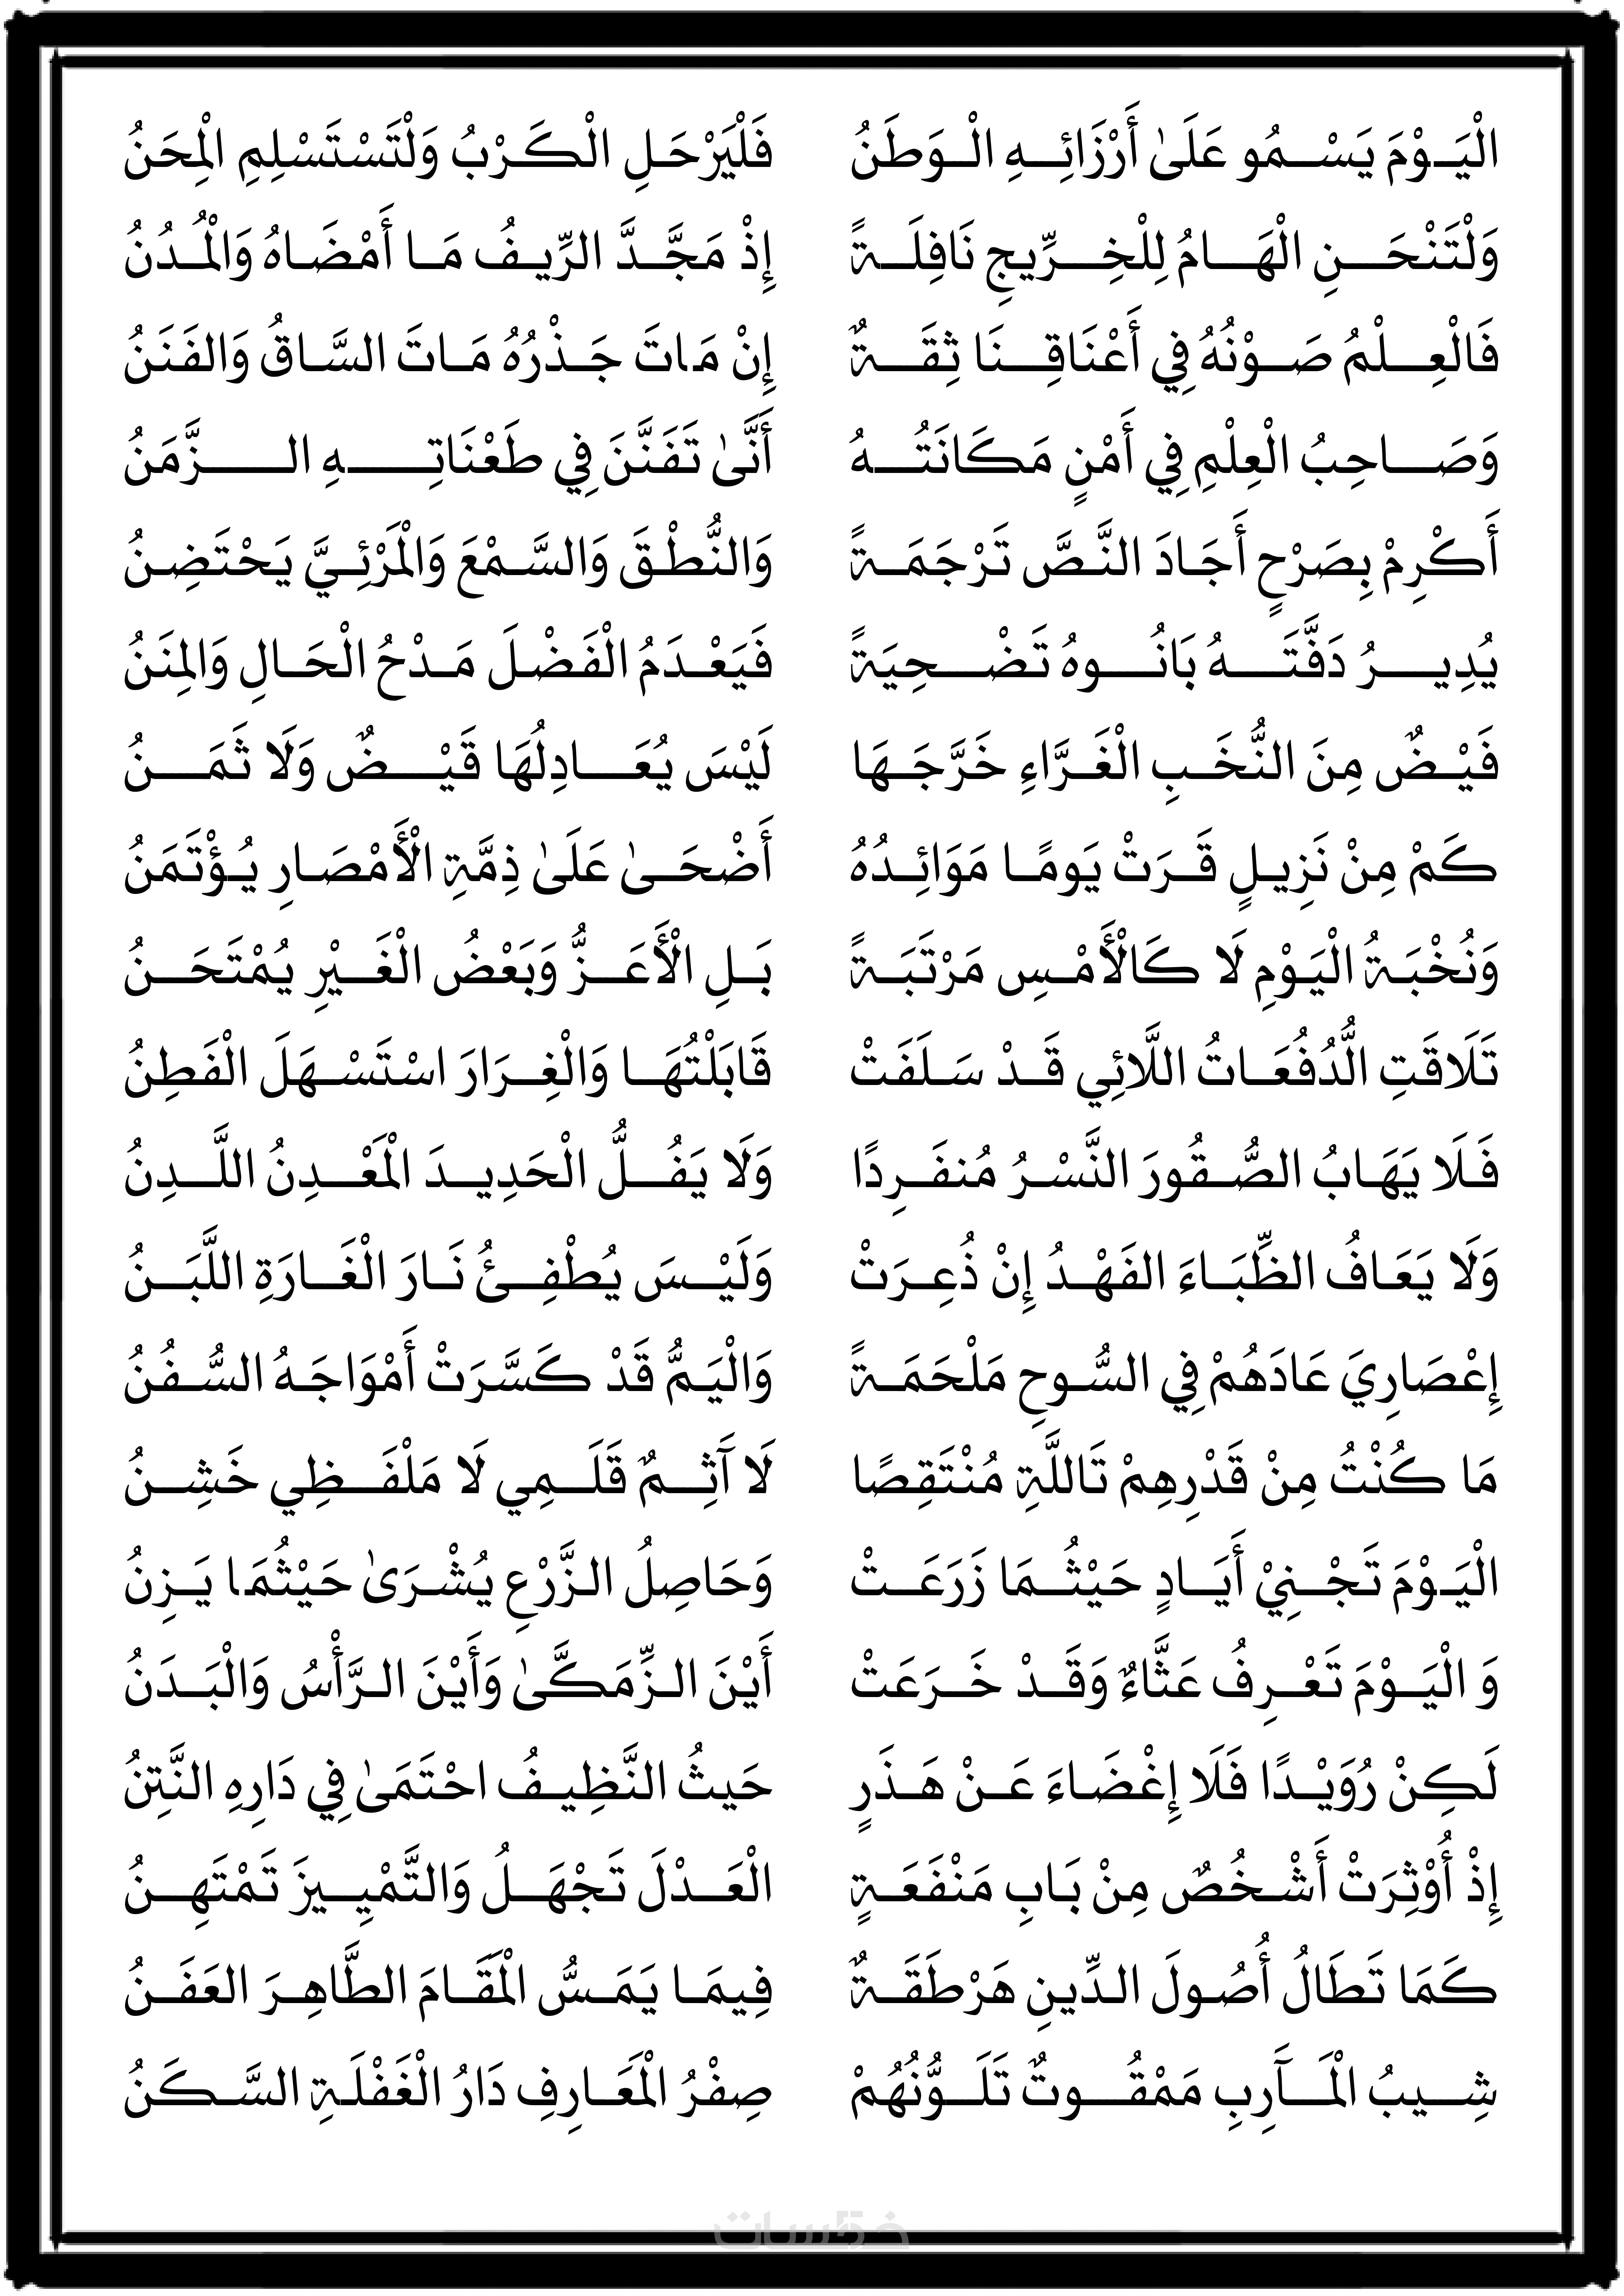 الْيَـوْمَ يَسْـمُو عَلَىٰ أَرْزَائِـهِ الْـوَطَنُ فَلْيَرْحَـلِ الْكَـرْبُ وَلْتَسْتَسْلِمِ الْمِحَنُ
وَلْتَنْحَـنِ الْهَـامُ لِلْخِـرِّيجِ نَافِلَـةً إِذْ مَجَّـدَّ الرِّيـفُ مَـا أَمْضَـاهُ وَالْمُـدُنُ
فَالْعِـلْمُ صَـوْنُهُ فِي أَعْنَاقِـنَا ثِقَـةٌ إِنْ مَاتَ جَـذْرُهُ مَـاتَ السَّـاقُ وَالفَنَنُ
وَصَـاحِبُ الْعِلْمِ فِي أَمْنٍ مَكَانَتُـهُ أَنَّىٰ تَفَنَّنَ فِي طَعْنَاتِـهِ الـزَّمَنُ
أَكْرِمْ بِصَرْحٍ أَجَـادَ النَّـصَّ تَرْجَمَـةً وَالنُّطْـقَ وَالسَّـمْعَ وَالْمَرْئِـيَّ يَحْتَضِـنُ
يُدِيـرُ دَفَّتَـهُ بَانُـوهُ تَضْـحِيَةً فَيَعْـدَمُ الْفَضْـلَ مَـدْحُ الْحَـالِ وَالمِنَنُ
فَيْـضٌ مِنَ النُّخَـبِ الْغَـرَّاءِ خَرَّجَـهَا لَيْسَ يُعَـادِلُهَا قَيْـضٌ وَلَا ثَمَـنُ
كَمْ مِنْ نَزِيـلٍ قَـرَتْ يَومًـا مَوَائِـدُهُ أَضْحَـىٰ عَلَىٰ ذِمَّةِ الْأَمْصَـارِ يُـؤْتَمَنُ
وَنُخْبَـةُ الْيَـوْمِ لَا كَالْأَمْـسِ مَرْتَبَـةً بَـلِ الْأَعَـزُّ وَبَعْضُ الْغَـيْرِ يُمْتَحَـنُ
تَلَاقَتِ الدُّفُعَـاتُ اللَّائِي قَـدْ سَـلَفَتْ قَابَلْتُهَـا وَالْغِـرَارَ اسْتَسْـهَلَ الْفَطِنُ
فَـلَا يَهَـابُ الصُّـقُورَ النَّسْـرُ مُنفَـرِدًا وَلَا يَفُـلُّ الْحَدِيـدَ الْمَعْـدِنُ اللَّـدِنُ
وَلَا يَعَـافُ الظِّبَـاءَ الفَهْـدُ إِنْ ذُعِـرَتْ وَلَيْـسَ يُطْفِـئُ نَـارَ الْغَـارَةِ اللَّبَـنُ
إِعْصَارِيَ عَادَهُمْ فِي السُّـوحِ مَلْحَمَـةً وَالْيَـمُّ قَدْ كَسَّرَتْ أَمْوَاجَـهُ السُّـفُنُ
مَا كُنْتُ مِنْ قَدْرِهِمْ تَاللَّهِ مُنْتَقِصًا لَا آثِـمٌ قَلَـمِي لَا مَلْفَـظِي خَشِـنُ
الْيَـوْمَ تَجْـنِيْ أَيَـادٍ حَيْثُـمَا زَرَعَـتْ وَحَاصِلُ الـزَّرْعِ يُشْـرَىٰ حَيْثُمَا يَـزِنُ
وَ الْيَـوْمَ تَعْـرِفُ عَثَّاءٌ وَقَـدْ خَـرَعَتْ أَيْنَ الـزِّمَكَّىٰ وَأَيْنَ الـرَّأْسُ وَالْبَـدَنُ
لَكِنْ رُوَيْـدًا فَلَا إِغْضَـاءَ عَـنْ هَـذَرٍ حَيثُ النَّظِيـفُ احْتَمَىٰ فِي دَارِهِ النَّتِنُ
إِذْ أُوْثِرَتْ أَشْـخُصٌ مِنْ بَـابِ مَنْفَعَـةٍ الْعَـدْلَ تَجْهَـلُ وَالتَّمْيِـيزَ تَمْتَهِـنُ
كَمَا تَطَالُ أُصُولَ الدِّينِ هَرْطَقَـةٌ فِيمَـا يَمَـسُّ الْمَقَـامَ الطَّاهِـرَ العَفَـنُ
شِـيبُ الْمَـآرِبِ مَمْقُـوتٌ تَلَـوُّنُهُمْ صِفْرُ الْمَعَـارِفِ دَارُ الْغَفْلَـةِ السَّـكَنُ
خمسات